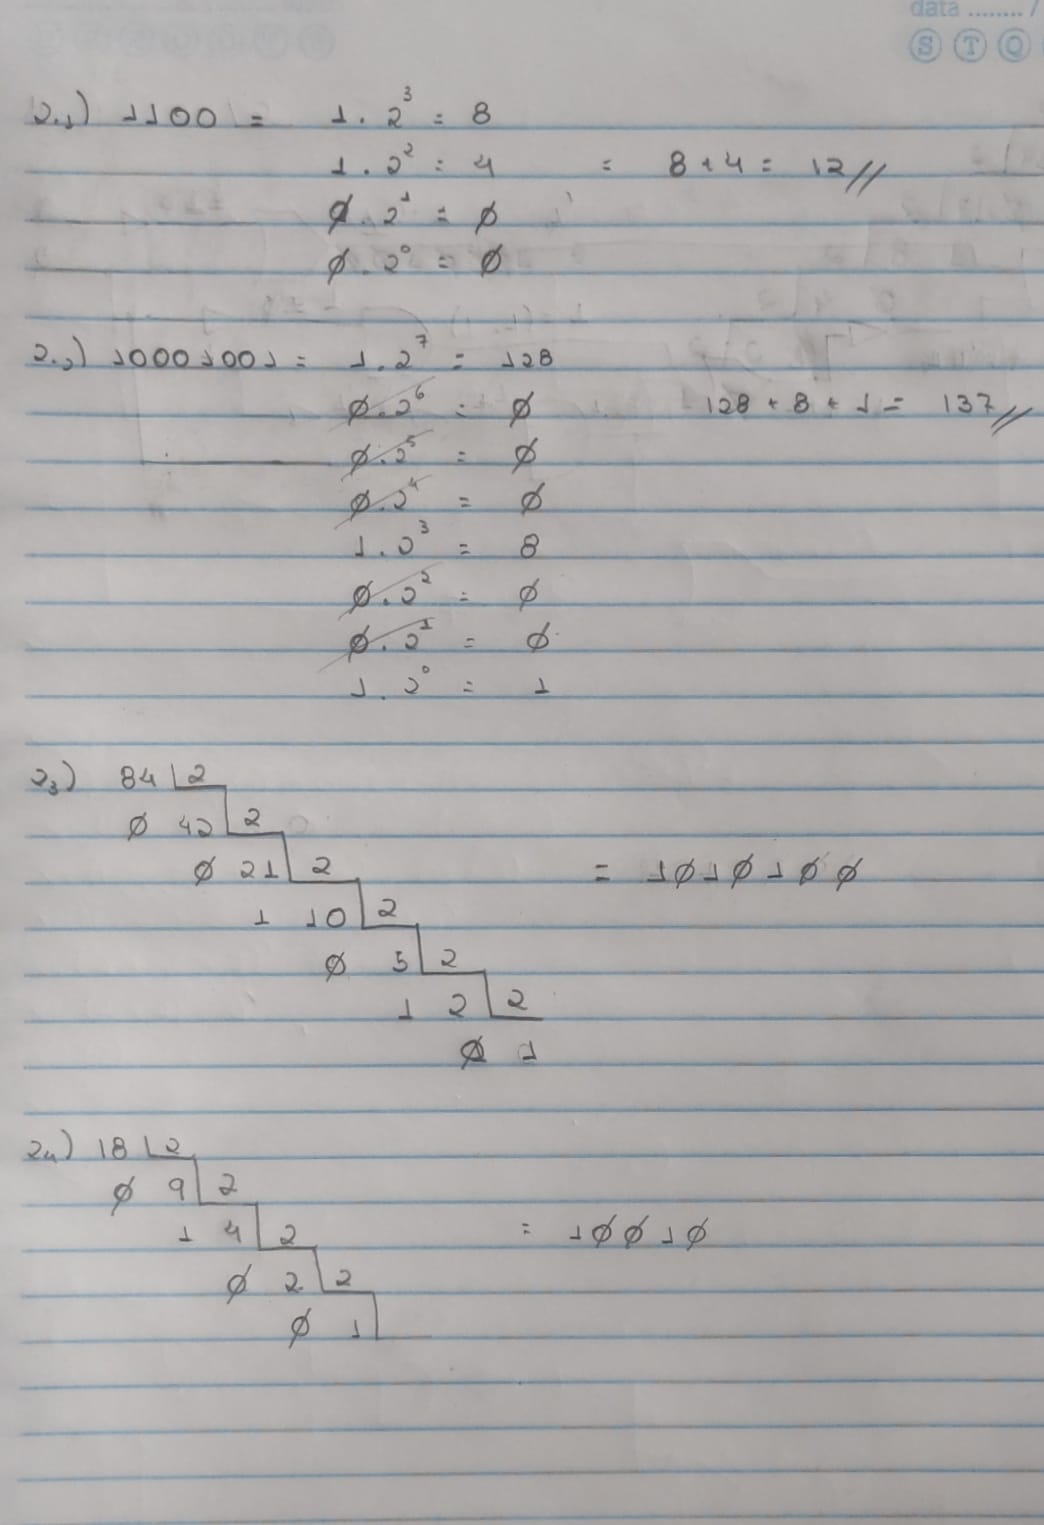 data ........ /
S T Q
2.1) 1100 = 1 . 2³ = 8
1 . 2² = 4 = 8 + 4 = 12 //
∅ . 2¹ = ∅
∅ . 2⁰ = ∅
2.2) 10001001 = 1 . 2⁷ = 128
∅ . 2⁶ = ∅ 128 + 8 + 1 = 137 //
∅ . 2⁵ = ∅
∅ . 2⁴ = ∅
1 . 2³ = 8
∅ . 2² = ∅
∅ . 2¹ = ∅
1 . 2⁰ = 1
2.3) 84 2
∅ 42 2
∅ 21 2 = 1∅1∅1∅∅
1 10 2
∅ 5 2
1 2 2
∅ 1
2.4) 18 2
∅ 9 2
1 4 2 = 1∅∅1∅
∅ 2 2
∅ 1